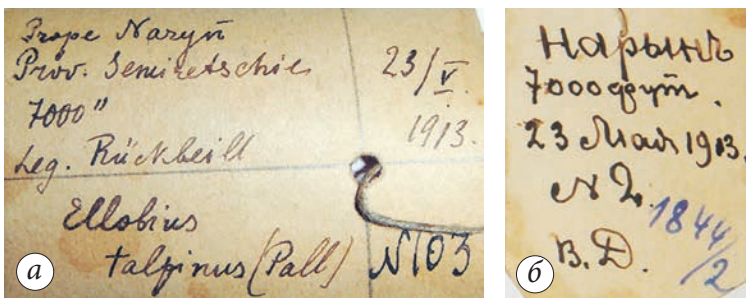 Prope Naryn
Prov. Semiretschie 23/V.
7000" 1913.
Leg. Rückbeill
Ellobius
talpinus (Pall) N103
а
Нарынъ
7000 фут.
23 Мая 1913.
N 2.
1844/2
В. Д.
б